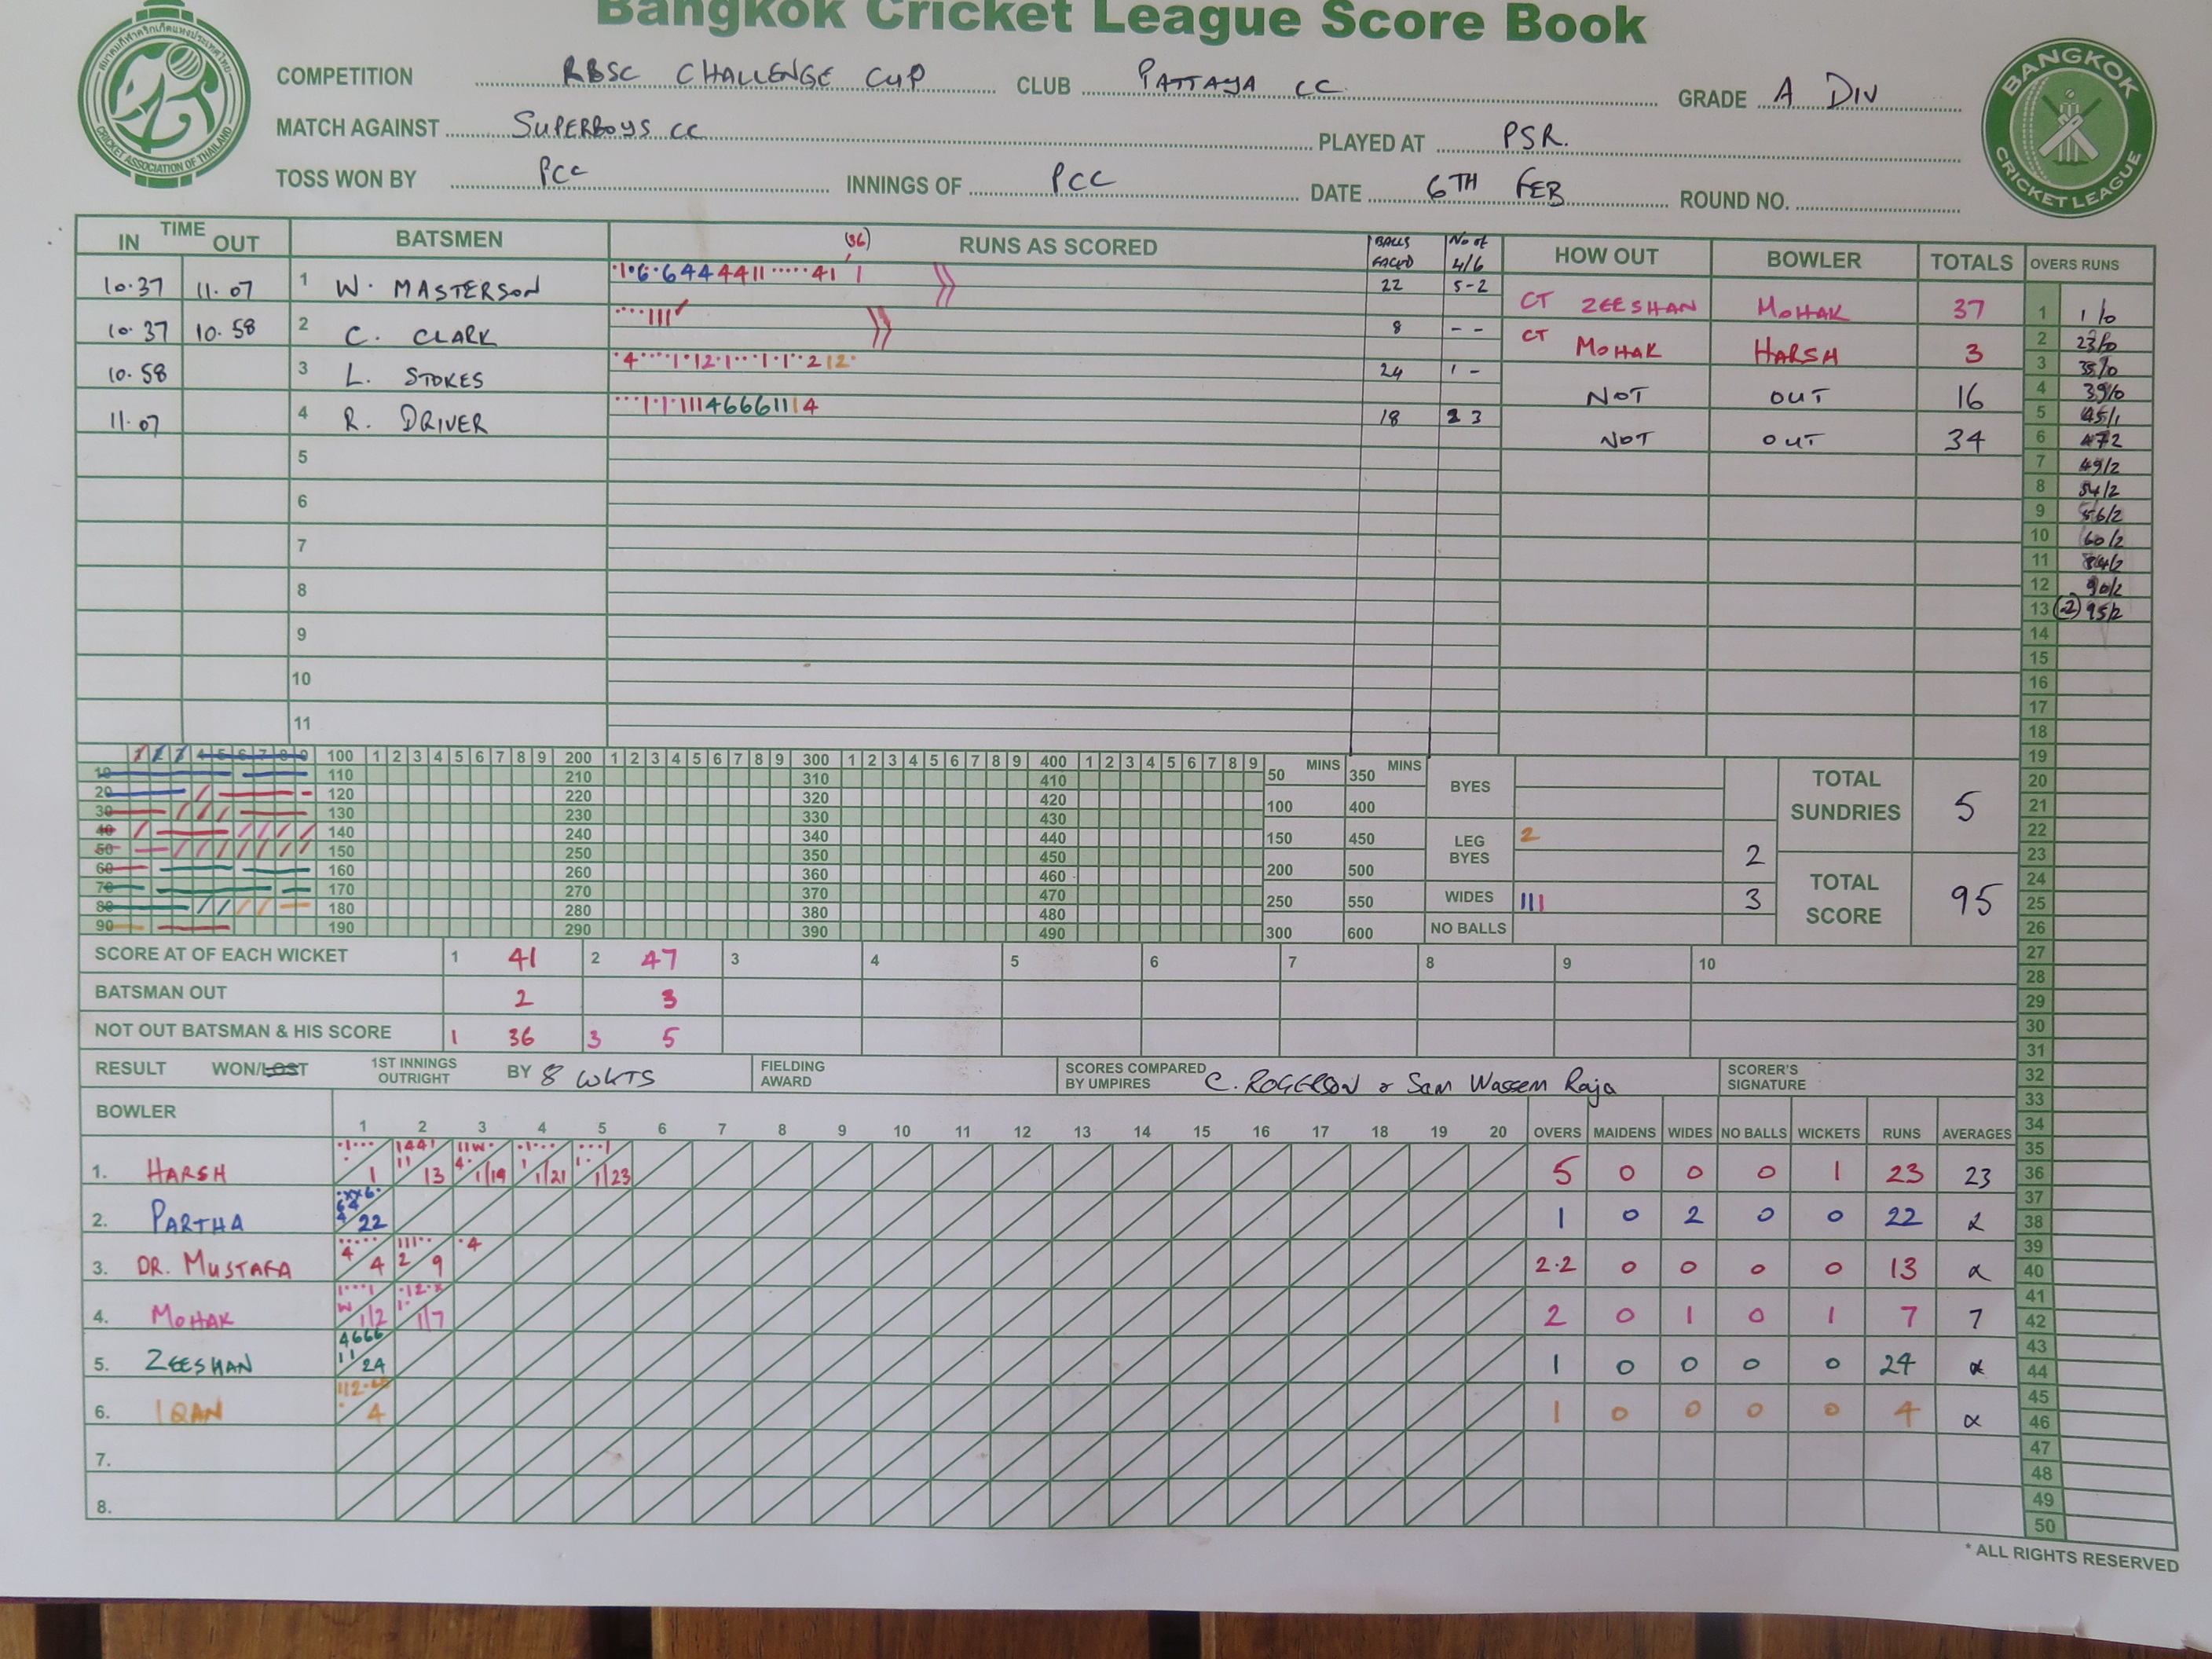 Bangkok Cricket League Score Book
COMPETITION RBSC CHALLENGE CUP CLUB PATTAYA CC. GRADE A DIV
MATCH AGAINST SUPERBOYS CC PLAYED AT PSR.
TOSS WON BY PCC INNINGS OF PCC DATE 6TH FEB ROUND NO.
สมาคมกีฬาคริกเก็ตแห่งประเทศไทย
CRICKET ASSOCIATION OF THAILAND
BANGKOK CRICKET LEAGUE
TIME IN OUT BATSMEN (36) RUNS AS SCORED BALLS FACED No of 4/6 HOW OUT BOWLER TOTALS OVERS RUNS
10.37 11.07 1 W. MASTERSON 22 5-2 CT ZEESHAN MOHAK 37
10.37 10.58 2 C. CLARK 8 - - CT MOHAK HARSH 3
10.58 3 L. STOKES 24 1 - NOT OUT 16
11.07 4 R. DRIVER 18 2 3 NOT OUT 34
5
6
7
8
9
10
11
1 1/0
2 23/0
3 35/0
4 39/0
5 45/1
6 47/2
7 49/2
8 54/2
9 56/2
10 60/2
11 84/2
12 90/2
13 (2) 95/2
14
15
16
17
18
19
20
21
22
23
24
25
26
27
28
29
30
31
32
33
34
35
36
37
38
39
40
41
42
43
44
45
46
47
48
49
50
1 2 3 4 5 6 7 8 9 100 1 2 3 4 5 6 7 8 9 200 1 2 3 4 5 6 7 8 9 300 1 2 3 4 5 6 7 8 9 400 1 2 3 4 5 6 7 8 9
10 110 210 310 410
20 120 220 320 420
30 130 230 330 430
40 140 240 340 440
50 150 250 350 450
60 160 260 360 460
70 170 270 370 470
80 180 280 380 480
90 190 290 390 490
MINS MINS
50 350
100 400
150 450
200 500
250 550
300 600
BYES
LEG BYES 2 2
WIDES III 3
NO BALLS
TOTAL SUNDRIES 5
TOTAL SCORE 95
SCORE AT OF EACH WICKET 1 41 2 47 3 4 5 6 7 8 9 10
BATSMAN OUT 2 3
NOT OUT BATSMAN & HIS SCORE 1 36 3 5
RESULT WON/LOST 1ST INNINGS OUTRIGHT BY 8 WKTS FIELDING AWARD SCORES COMPARED BY UMPIRES C. ROGERSON & Sam Wassem Raja SCORER'S SIGNATURE
BOWLER 1 2 3 4 5 6 7 8 9 10 11 12 13 14 15 16 17 18 19 20 OVERS MAIDENS WIDES NO BALLS WICKETS RUNS AVERAGES
1. HARSH 1 13 1/19 1/21 1/23 5 0 0 0 1 23 23
2. PARTHA 22 1 0 2 0 0 22 α
3. DR. MUSTAFA 4 9 2.2 0 0 0 0 13 α
4. MOHAK 1/2 1/7 2 0 1 0 1 7 7
5. ZEESHAN 4666 11 24 1 0 0 0 0 24 α
6. IQAN 4 1 0 0 0 0 4 α
7.
8.
* ALL RIGHTS RESERVED